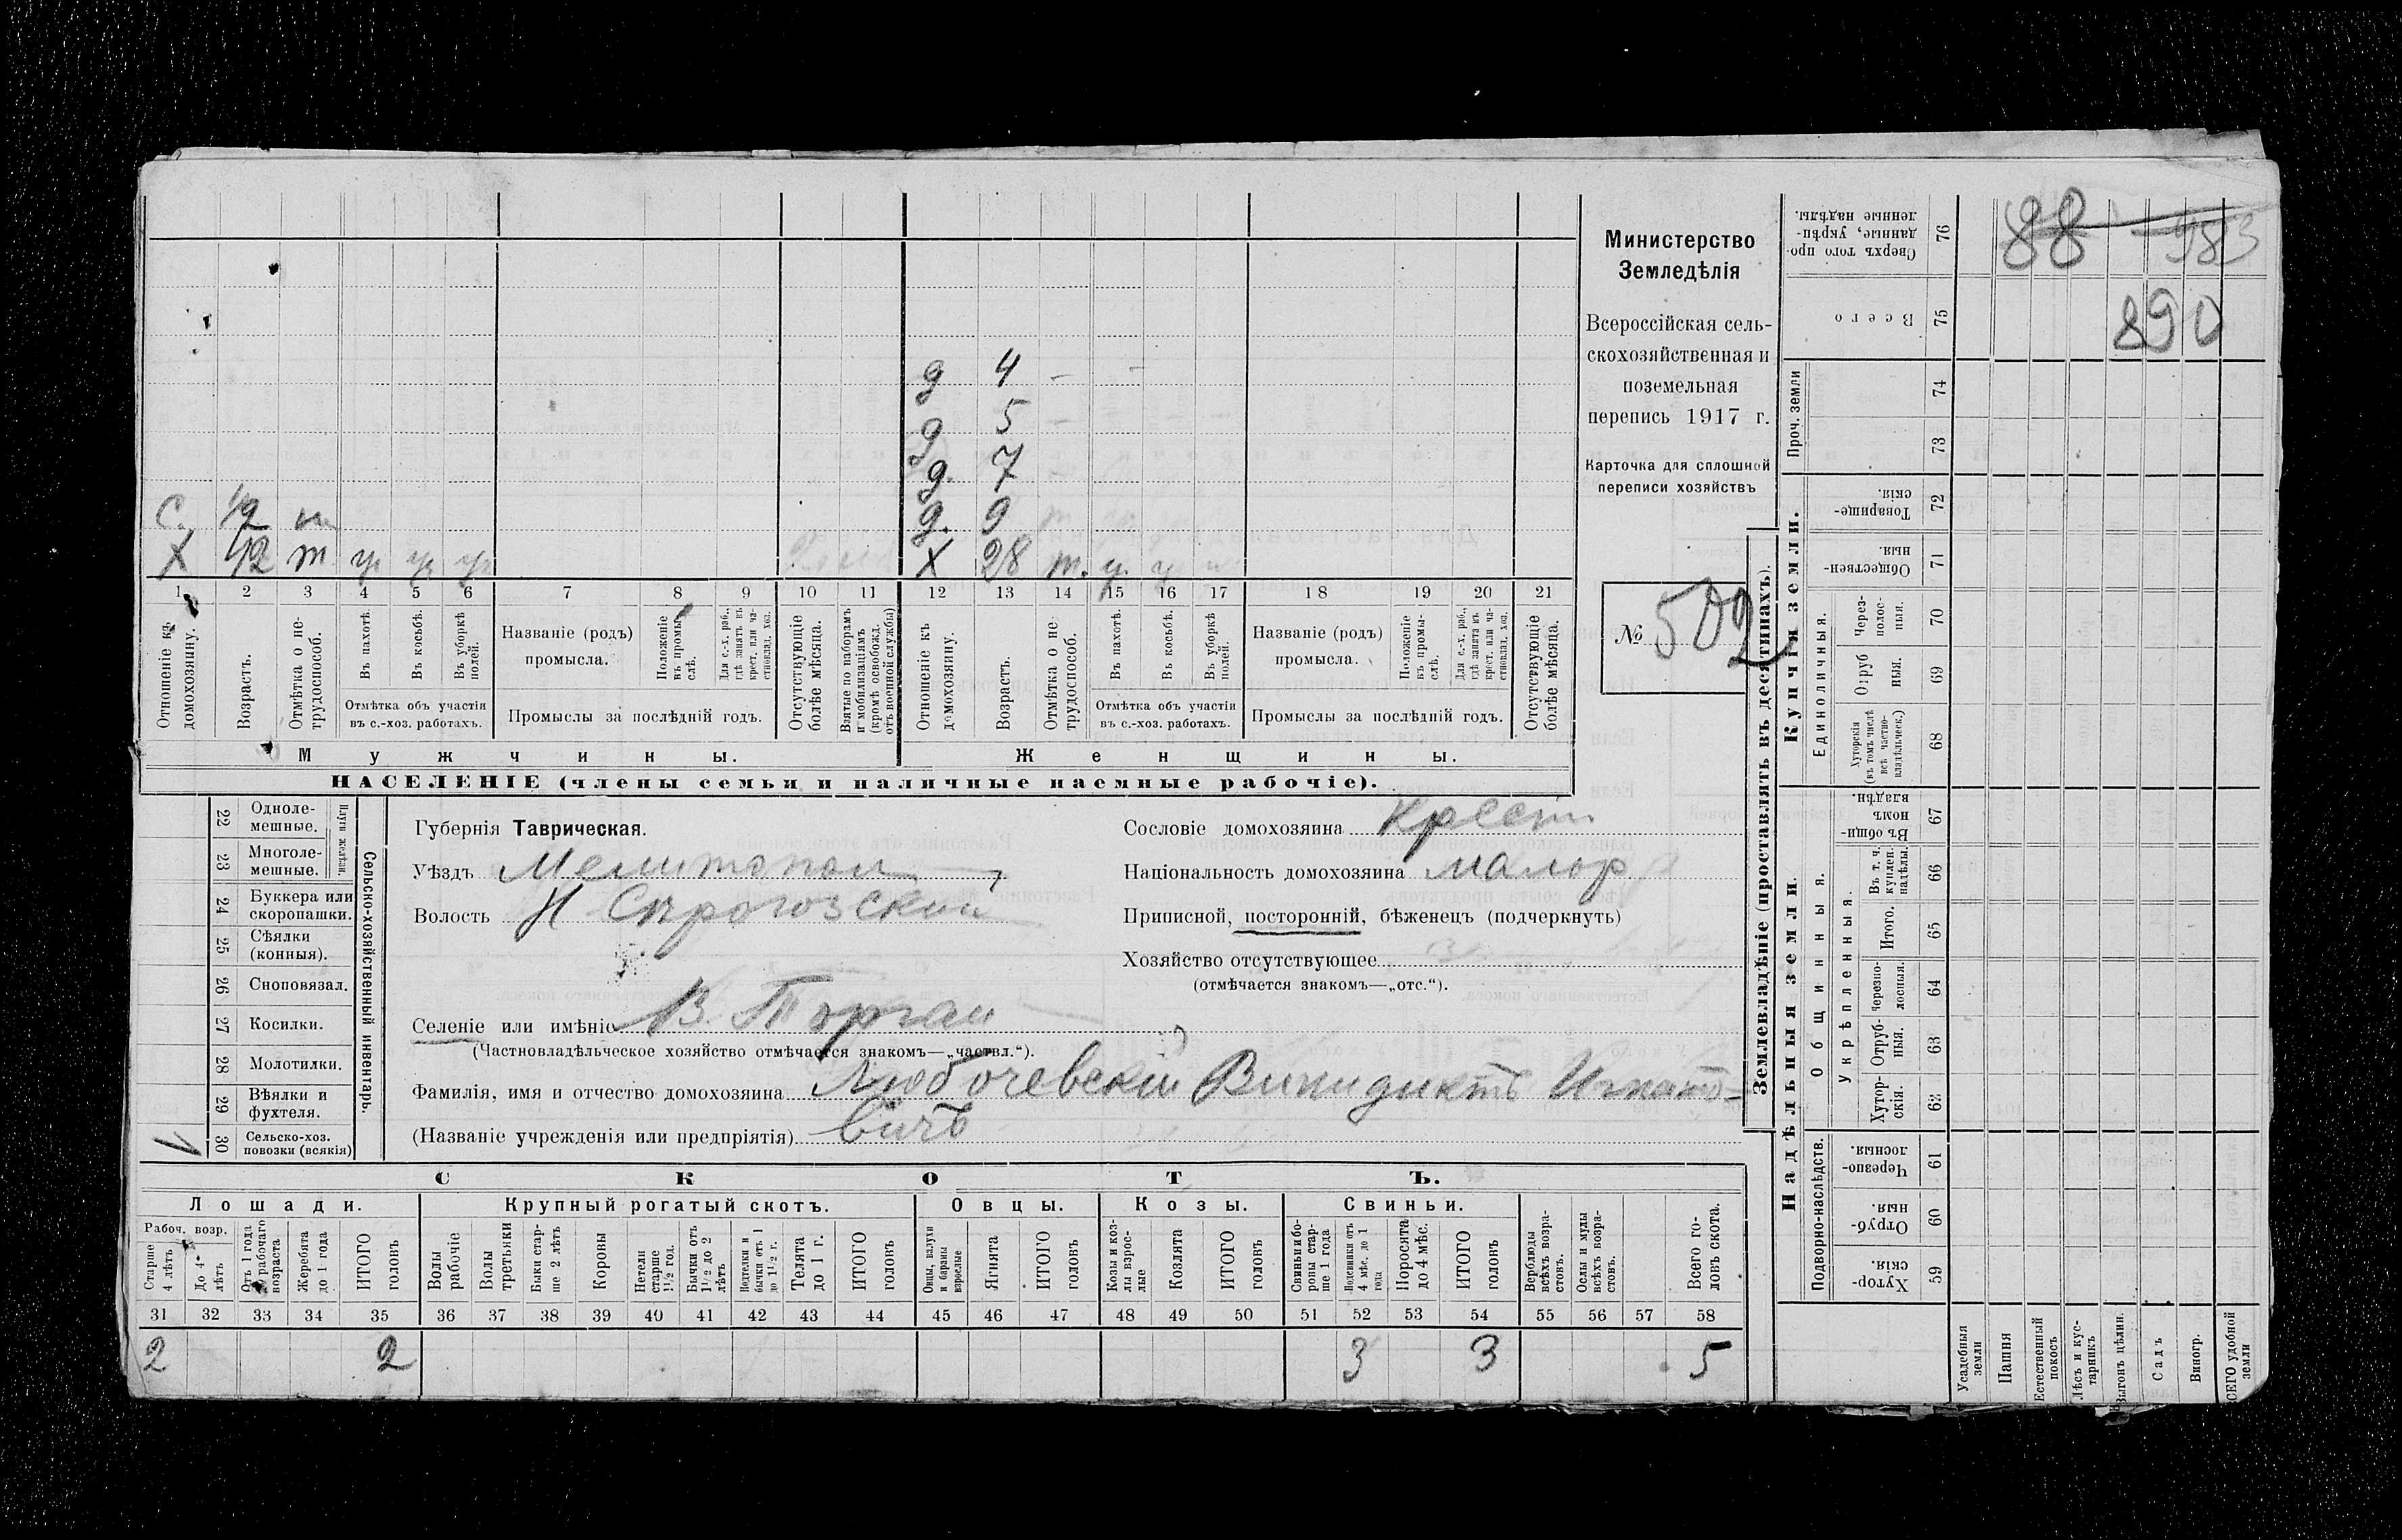 Министерство
Земледѣлія
Всероссійская сель-
скохозяйственная и
поземельная
перепись 1917 г.
Карточка для сплошной
переписи хозяйствъ
№ 502
д 4 — —
д 5 —
д. 7 —
С. 12 д. 9
Х 42 т у у у Х 28 т. у. у
1 2 3 4 5 6 7 8 9 10 11 12 13 14 15 16 17 18 19 20 21
Отношеніе къ домохозяину.
Возрастъ.
Отмѣтка о не-трудоспособ.
Въ пахотѣ.
Въ косьбѣ.
Въ уборкѣ полей.
Отмѣтка объ участіи
въ с.-хоз. работахъ.
Названіе (родъ)
промысла.
Положеніе въ промыслѣ.
Для с.-х. раб., гдѣ занятъ въ крест. или ча-стновлад. хоз.
Промыслы за послѣдній годъ.
Отсутствующіе болѣе мѣсяца.
Взятые по наборамъ и мобилизаціямъ (кромѣ освобожд. отъ военной службы)
Отношеніе къ домохозяину.
Возрастъ.
Отмѣтка о не-трудоспособ.
Въ пахотѣ.
Въ косьбѣ.
Въ уборкѣ полей.
Отмѣтка объ участіи
въ с.-хоз. работахъ.
Названіе (родъ)
промысла.
Положеніе въ промы-слѣ.
Для с.-х. раб., гдѣ занята въ крест. или ча-стновлад. хоз.
Промыслы за послѣдній годъ.
Отсутствующіе болѣе мѣсяца.
Мужчины.
Женщины.
НАСЕЛЕНІЕ (члены семьи и наличные наемные рабочіе).
22 Одноле-мешные.
23 Многоле-мешные.
Плуги желѣзн.
24 Буккера или скоропашки.
25 Сѣялки (конныя).
26 Сноповязал.
27 Косилки.
28 Молотилки.
29 Вѣялки и фухтеля.
30 Сельско-хоз. повозки (всякія)
Сельско-хозяйственный инвентарь.
Губернія Таврическая.
Уѣздъ Мелитопол
Волость Н Сѣрогозская
Селеніе или имѣніе В. Торгаи
(Частновладѣльческое хозяйство отмѣчается знакомъ—„частвл.“).
Фамилія, имя и отчество домохозяина Любочевскій Виникдиктъ Игнато-
вичъ
(Названіе учрежденія или предпріятія)
Сословіе домохозяина Крестн
Національность домохозяина малор
Приписной, посторонній, бѣженецъ (подчеркнуть)
Хозяйство отсутствующее
(отмѣчается знакомъ—„отс.“).
СКОТЪ.
Лошади.
Крупный рогатый скотъ.
Овцы.
Козы.
Свиньи.
Рабоч. возр.
Старше 4 лѣтъ
До 4 лѣтъ
Отъ 1 года до рабочаго возраста
Жеребята до 1 года
ИТОГО головъ
Волы рабочіе
Волы третьяки
Быки стар-ше 2 лѣтъ
Коровы
Нетели старше 1½ год.
Бычки отъ 1½ до 2 лѣтъ
Подтелки и бычки отъ 1 до 1½ г.
Телята до 1 г.
ИТОГО головъ
Овцы, валухи и бараны взрослые
Ягнята
ИТОГО головъ
Козы и коз-лы взрос-лые
Козлята
ИТОГО головъ
Свиньи и бо-ровы стар-ше 1 года
Подсвинки отъ 4 мѣс. до 1 года
Поросята до 4 мѣс.
ИТОГО головъ
Верблюды всѣхъ возра-стовъ.
Ослы и мулы всѣхъ возра-стовъ.
Всего го-ловъ скота.
31 32 33 34 35 36 37 38 39 40 41 42 43 44 45 46 47 48 49 50 51 52 53 54 55 56 57 58
2 2 3 3 5
Землевладѣніе (проставлять въ десятинахъ).
Сверхъ того про-данные, укрѣп-ленные надѣлы. 76
88 983
Всего 75
890
Проч. земли
74
73
Купчія земли.
Товарище-скія. 72
Обществен-ныя. 71
Единоличныя.
Через-полос-ныя. 70
Отруб-ныя. 69
Хуторскія (въ томъ числѣ всѣ частно-владѣльческ.) 68
Надѣльныя земли.
Общинныя.
Въ общин-номъ владѣн. 67
Укрѣпленныя.
Въ т. ч. куплен. надѣлы. 66
Итого. 65
Черезпо-лосныя. 64
Отруб-ныя. 63
Хутор-скія. 62
Подворно-наслѣдств.
Черезпо-лосныя. 61
Отруб-ныя. 60
Хутор-скія. 59
Усадебныя земли
Пашня
Естественный покосъ
Лѣсъ и кус-тарникъ
Выгонъ цѣлин.
Садъ
Виногр.
ВСЕГО удобной земли